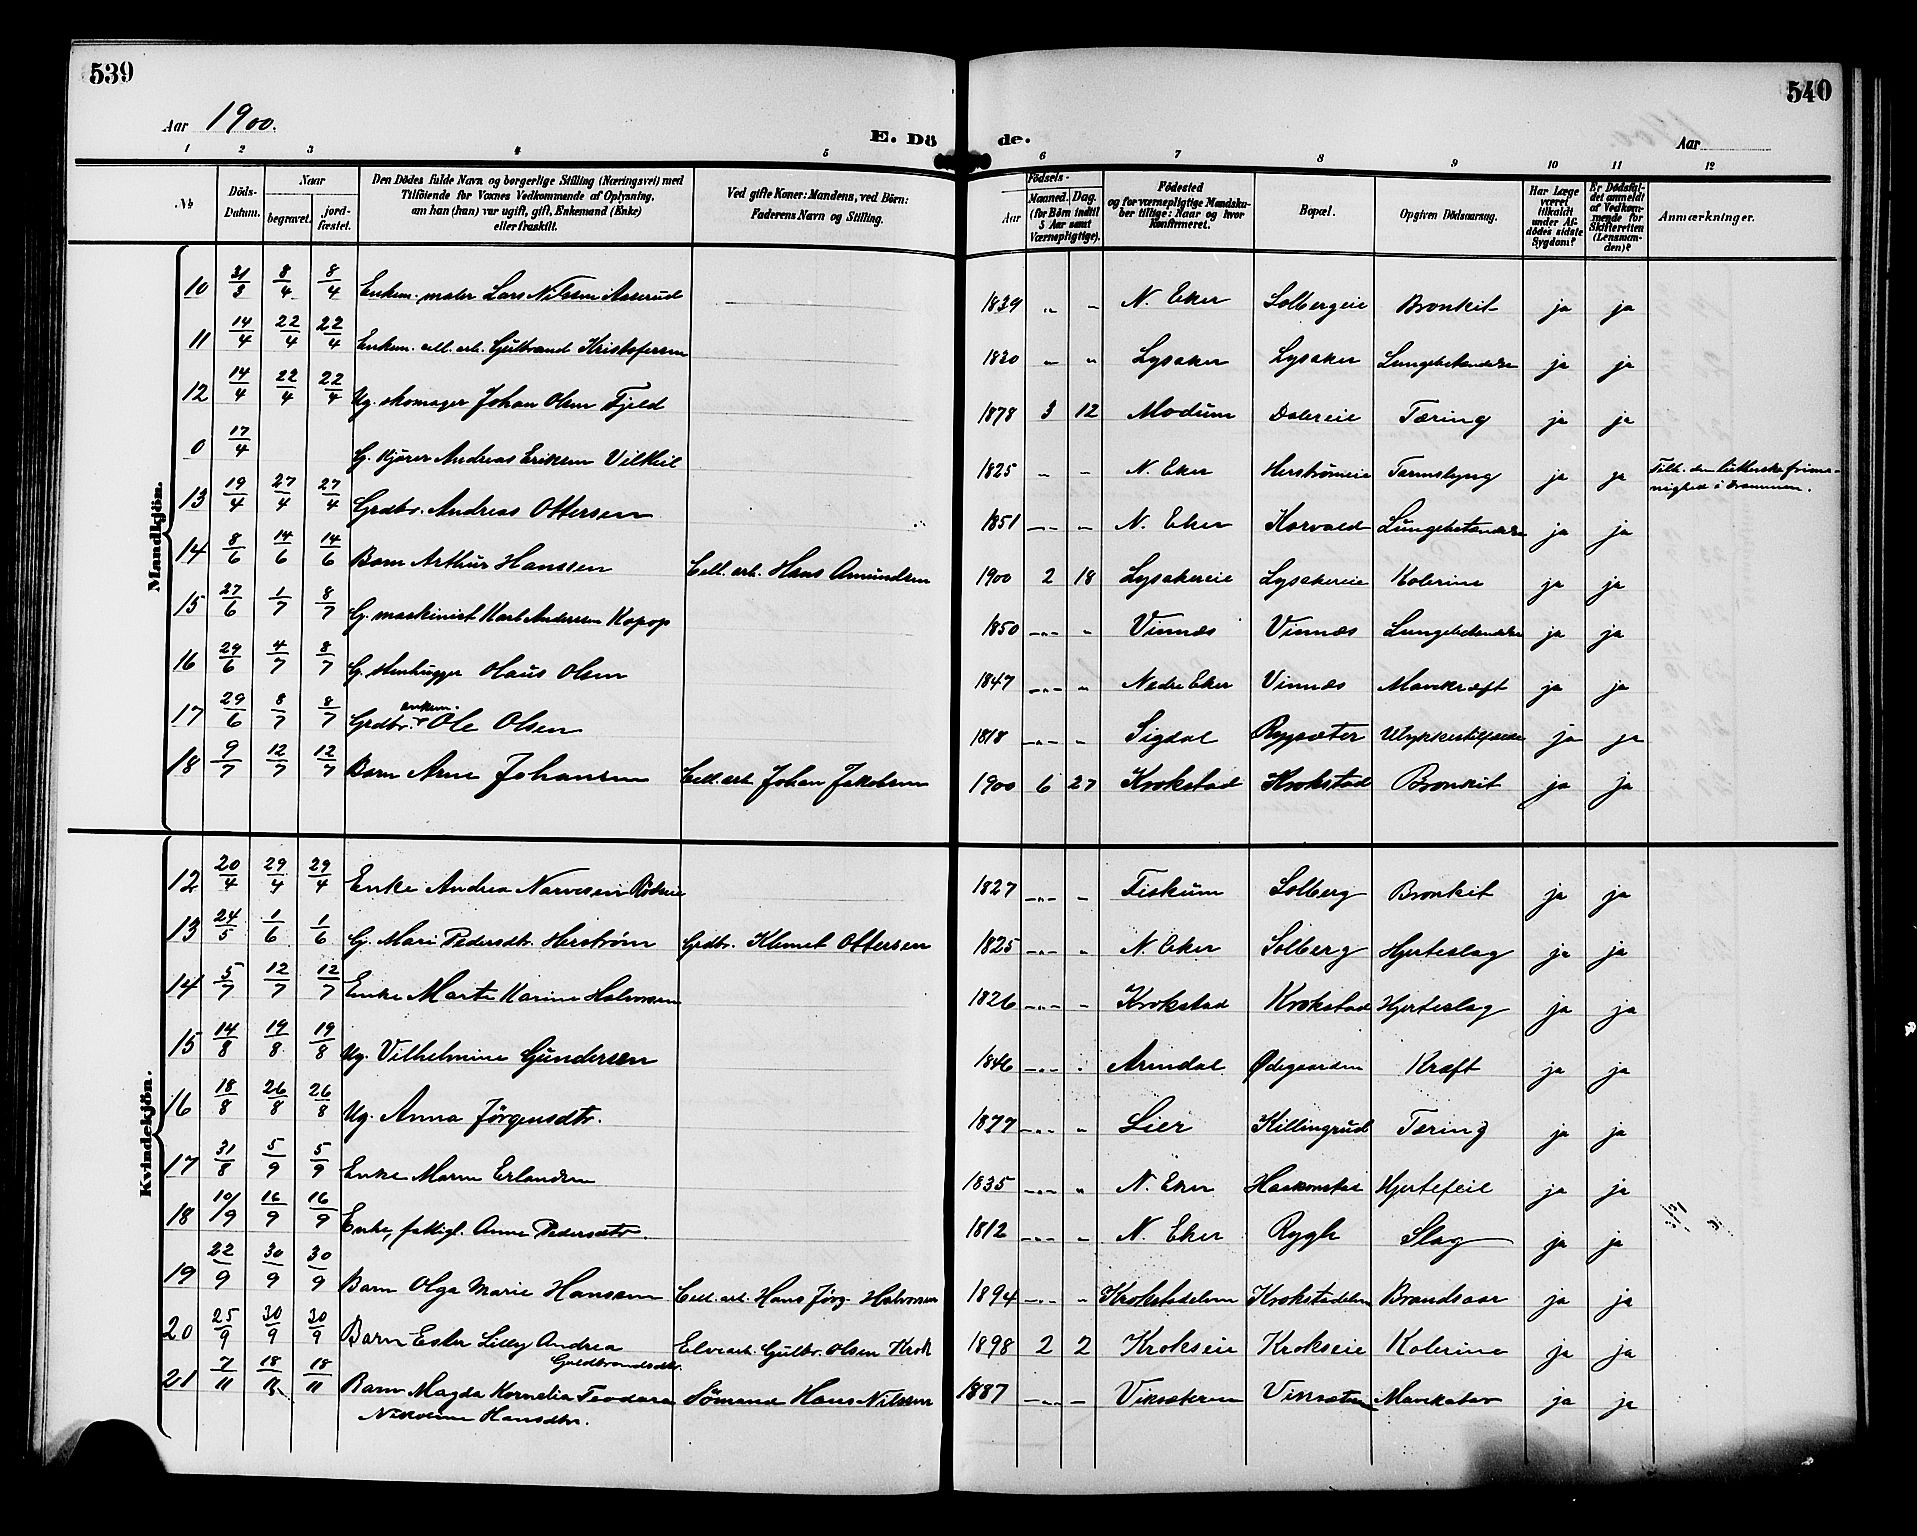 539
540
Aar 1900.
E. Dö de.
Aar
1 2 3 4 5 6 7 8 9 10 11 12
No
Döds-Datum.
Naar
begravet.
jord-fæstet.
Den Dödes fulde Navn og borgerlige Stilling (Næringsvei) med
Tilföiende for Voxnes Vedkommende af Oplysning,
om han (hun) var ugift, gift, Enkemand (Enke)
eller fraskilt.
Ved gifte Koner: Mandens, ved Börn:
Faderens Navn og Stilling.
Födsels-
Aar
Maaned. Dag.
(for Börn indtil
5 Aar samt
Værnepligtige).
Födested
og for værnepligtige Mandsku-
ber tillige: Naar og hvor
Konfirmeret.
Bopæl.
Opgiven Dödsaarsag.
Har Læge
været
tilkaldt
under Af-
dödes sidste
Sygdom?
Er Dödsfal-
det anmeldt
af Vedkom-
mende for
Skifteretten
(Lensman-
den)?
Anmærkninger.
Mandkjön.
10 31/3 8/4 8/4 Enkem. maler Lars Nilsen Aaserud 1839 " " N. Eker Solbergeie Bronkit ja ja
11 14/4 22/4 22/4 Enkem. cell. arb. Gulbrand Kristofersen 1820 " " Lysaker Lysaker Lungebetændelse ja ja
12 14/4 22/4 22/4 Ug. skomager Johan Olsen Fjeld 1878 3 12 Modum Dalereie Tæring ja ja
0 17/4 G. kjører Andreas Eriksen Vilkeil 1825 " " N. Eker Herstrømeie Tarmslyng ja ja Tilh. den lutherske frime-
nighed i Drammen.
13 19/4 27/4 27/4 Grdbr. Andreas Ottersen 1851 " " N. Eker Korvald Lungebetændelse ja ja
14 8/6 14/6 14/6 Barn Arthur Hanssen Cell. arb. Hans Amundsen 1900 2 18 Lysakereie Lysakereie Kolerine ja ja
15 27/6 1/7 8/7 G. maskinist Karl Andersen Kopop 1850 " " Vinnæs Vinnæs Lungebetændelse ja ja
16 29/6 4/7 8/7 G. stenhugger Olaus Olsen 1847 " " Nedre Eker Vinnæs Mavekræft ja ja
17 29/6 8/7 8/7 Grdbr. enkem. Ole Olsen 1818 " " Sigdal Rygsæter Ulykkestilfælde ja ja
18 9/7 12/7 12/7 Barn Arne Johansen Cell. arb. Johan Jakobsen 1900 6 27 Krokstad Krokstad Bronkit ja ja
Kvindekjön.
12 20/4 29/4 29/4 Enke Andrea Narvesen Rødseie 1827 " " Fiskum Solberg Bronkit ja ja
13 24/5 1/6 1/6 G. Mari Pedersdtr. Herstrøm Grdbr. Klemet Ottersen 1825 " " N. Eker Solberg Hjerteslag ja ja
14 5/7 12/7 12/7 Enke Marte Karine Halvorsen 1826 " " Krokstad Krokstad Hjerteslag ja ja
15 14/8 19/8 19/8 Ug. Vilhelmine Gundersen 1846 " " Arendal Ødegaarden Kræft ja ja
16 18/8 26/8 26/8 Ug. Anna Jørgensdtr. 1877 " " Lier Killingrud Tæring ja ja
17 31/8 5/9 5/9 Enke Maren Erlandsen 1835 " " N. Eker Hjertefeil ja ja
18 10/9 16/9 16/9 Enke, fattigl. Anne Pedersdtr. 1812 " " N. Eker Rygh Slag ja ja
19 22/9 30/9 30/9 Barn Olga Marie Hansen Cell. arb. Hans Jørg. Halvorsen 1894 " " Krokstadelven Krokstadelven Brandsaar ja ja
20 25/9 30/9 30/9 Barn Ester Lilly Andrea Elvearb. Gulbr. Olsen Krok 1898 2 2 Krokseie Krokseie Kolerine ja ja
Guldbrandsdtr.
21 7/11 18/11 18/11 Barn Magda Kornelia Teodora Sømand Hans Nilssen 1887 " " Viksæteren Viksæteren Mavekatar ja ja
Nikoline Hansdtr.